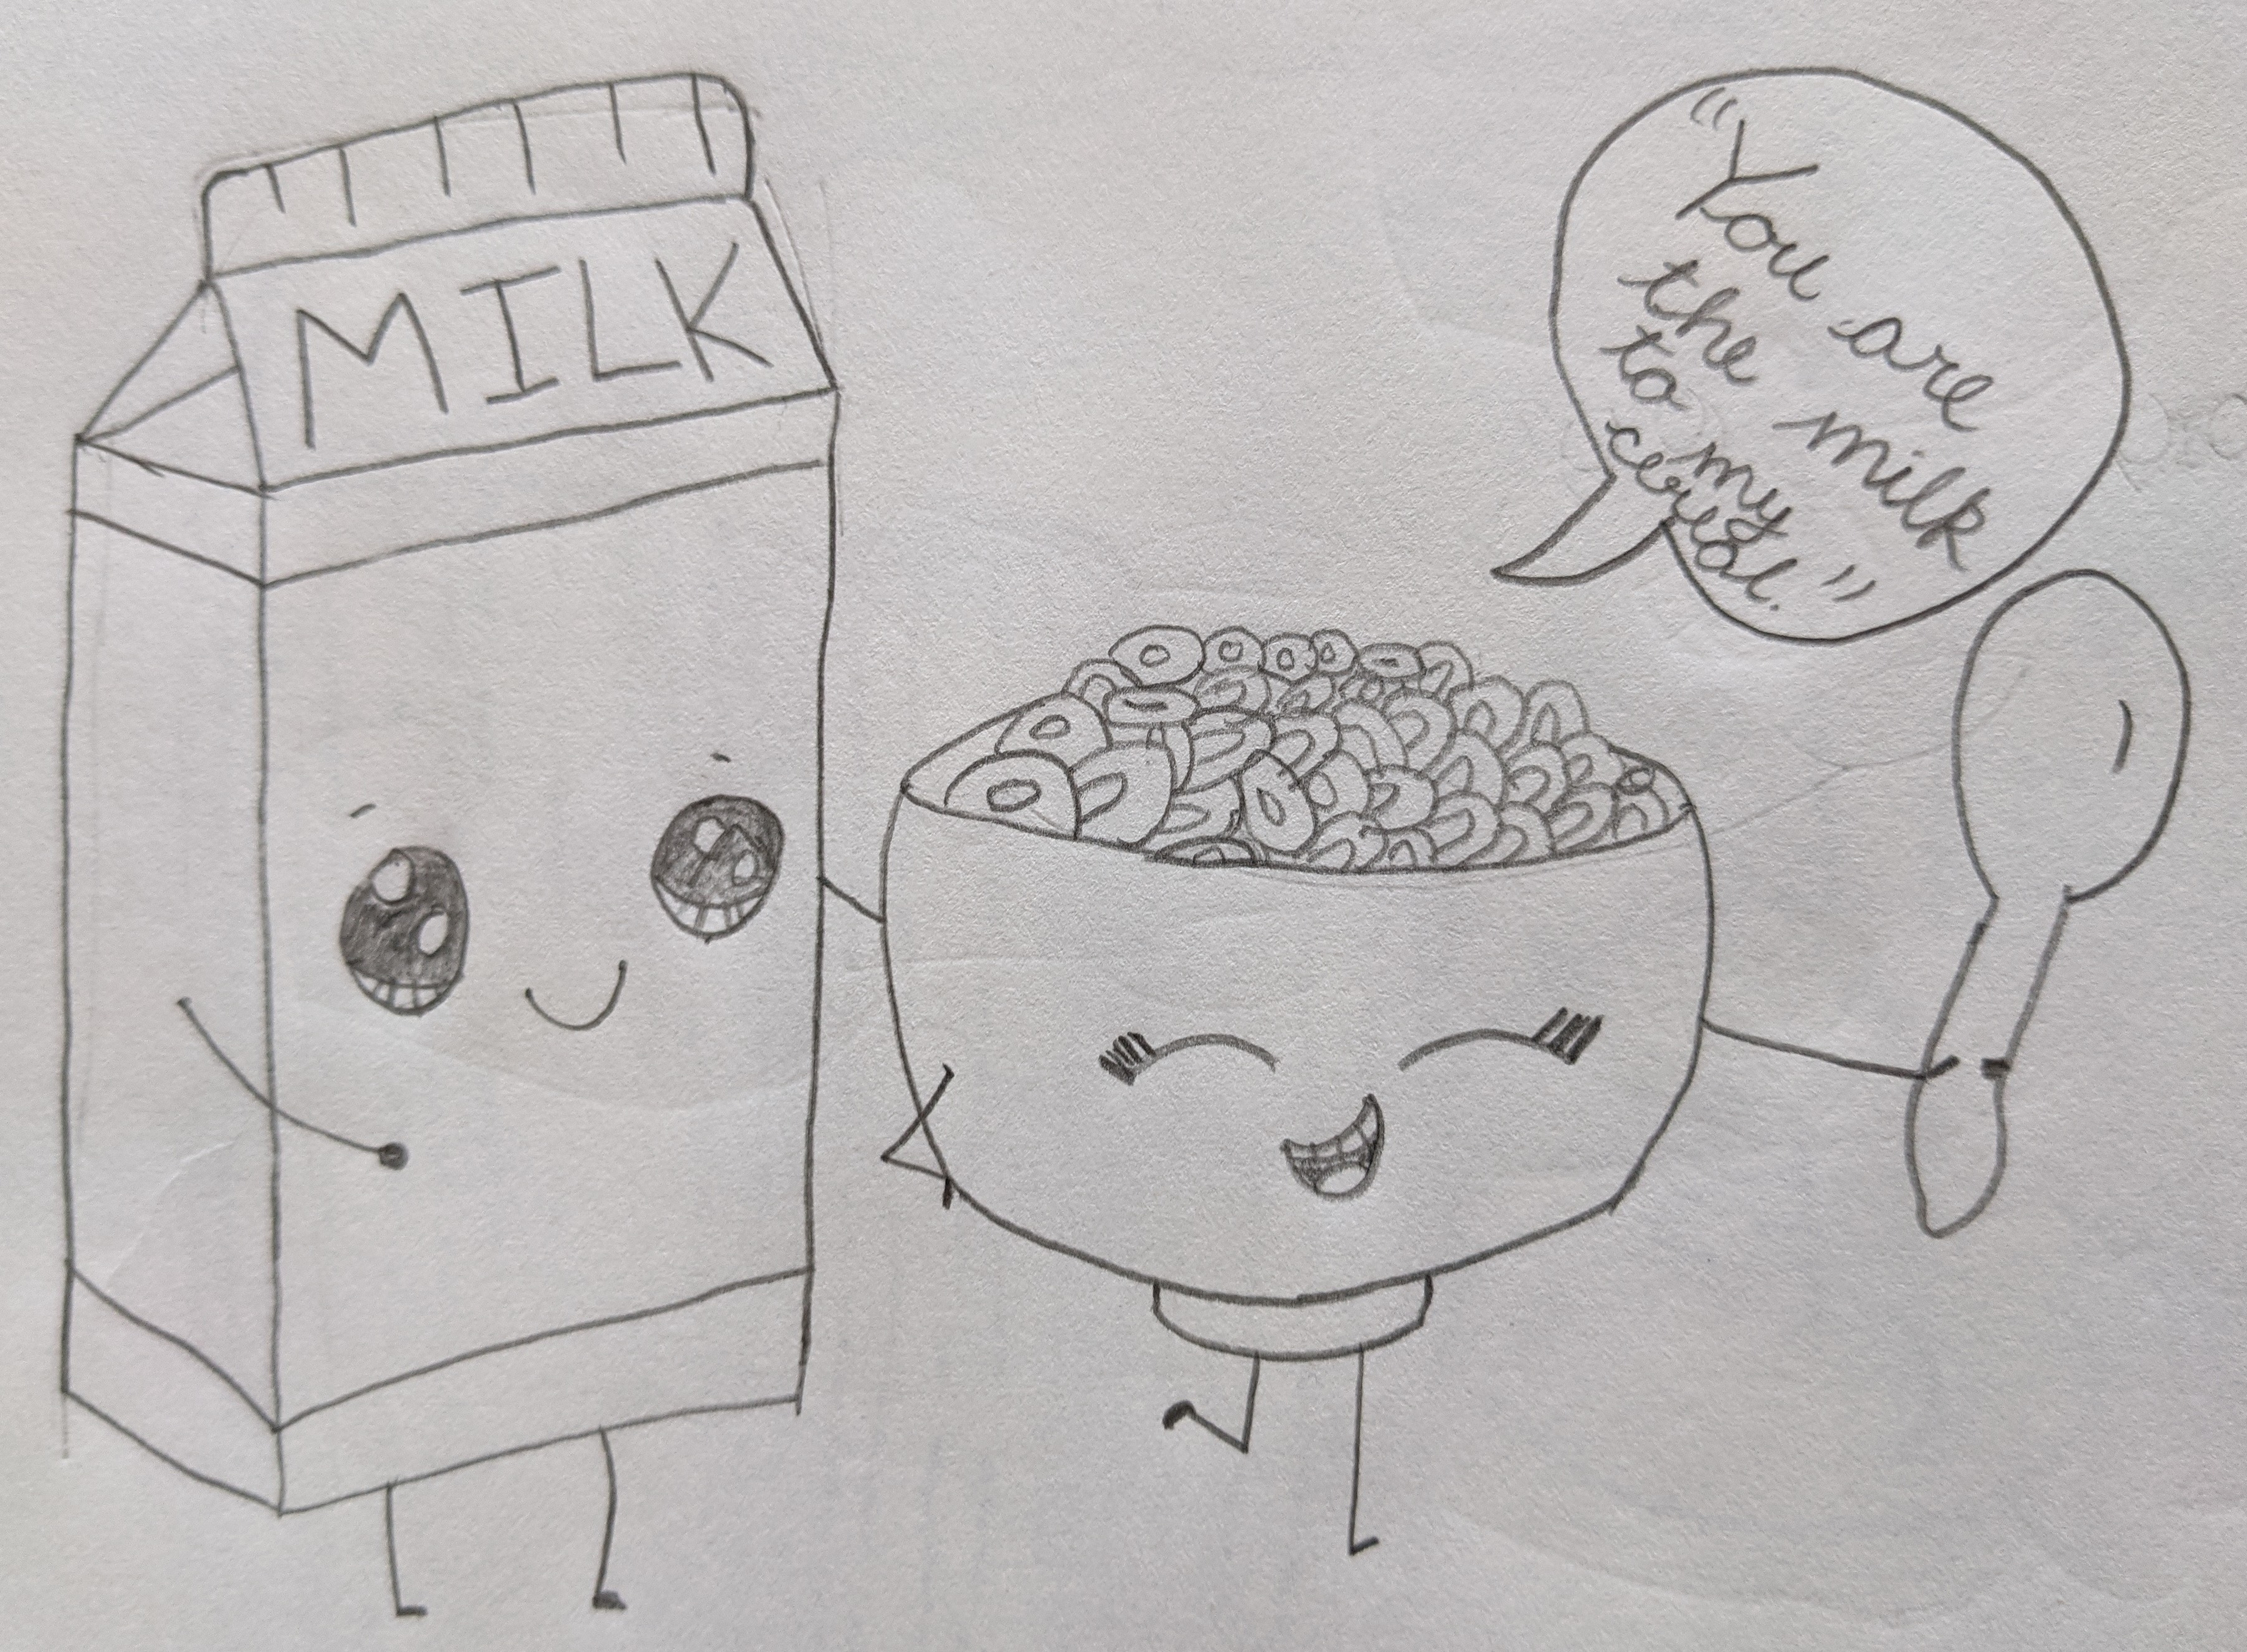 MILK
"You are
the milk
to my
cereal."